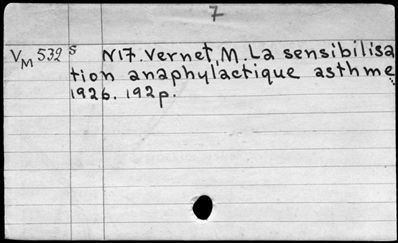 7
VM 532 S N17. Vernet, M. La sensibilisa
tion anaphylactique asthme
1926. 192p.